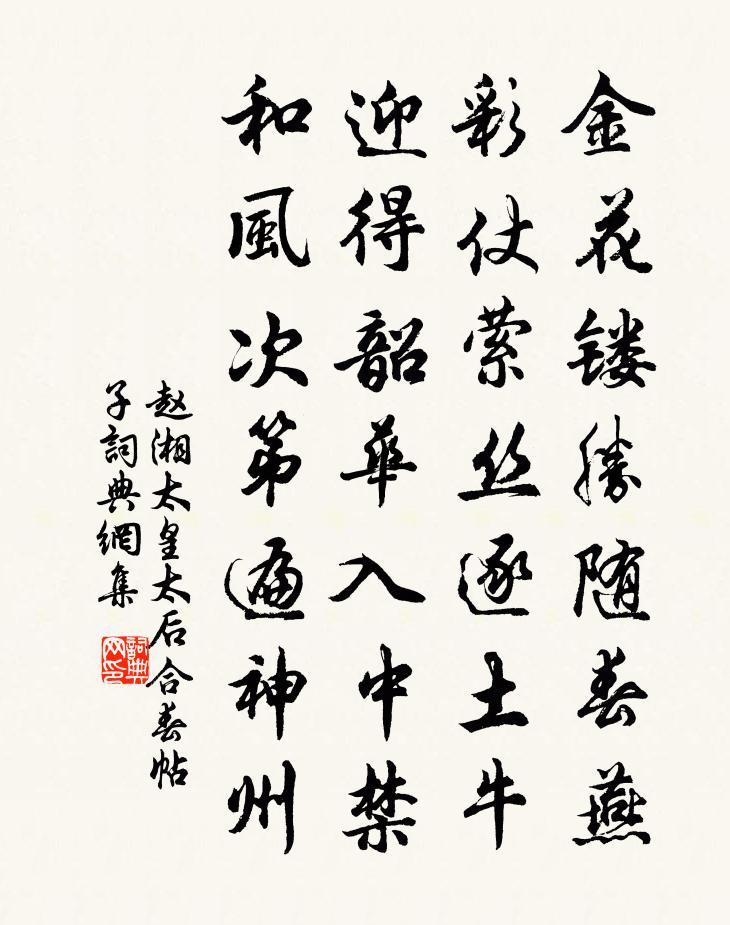 金花镂勝随春燕
彩仗萦丝逐土牛
迎得韶華入中禁
和風次第遍神州
赵湘太皇太后合春帖
子詞典網集
詞典网印